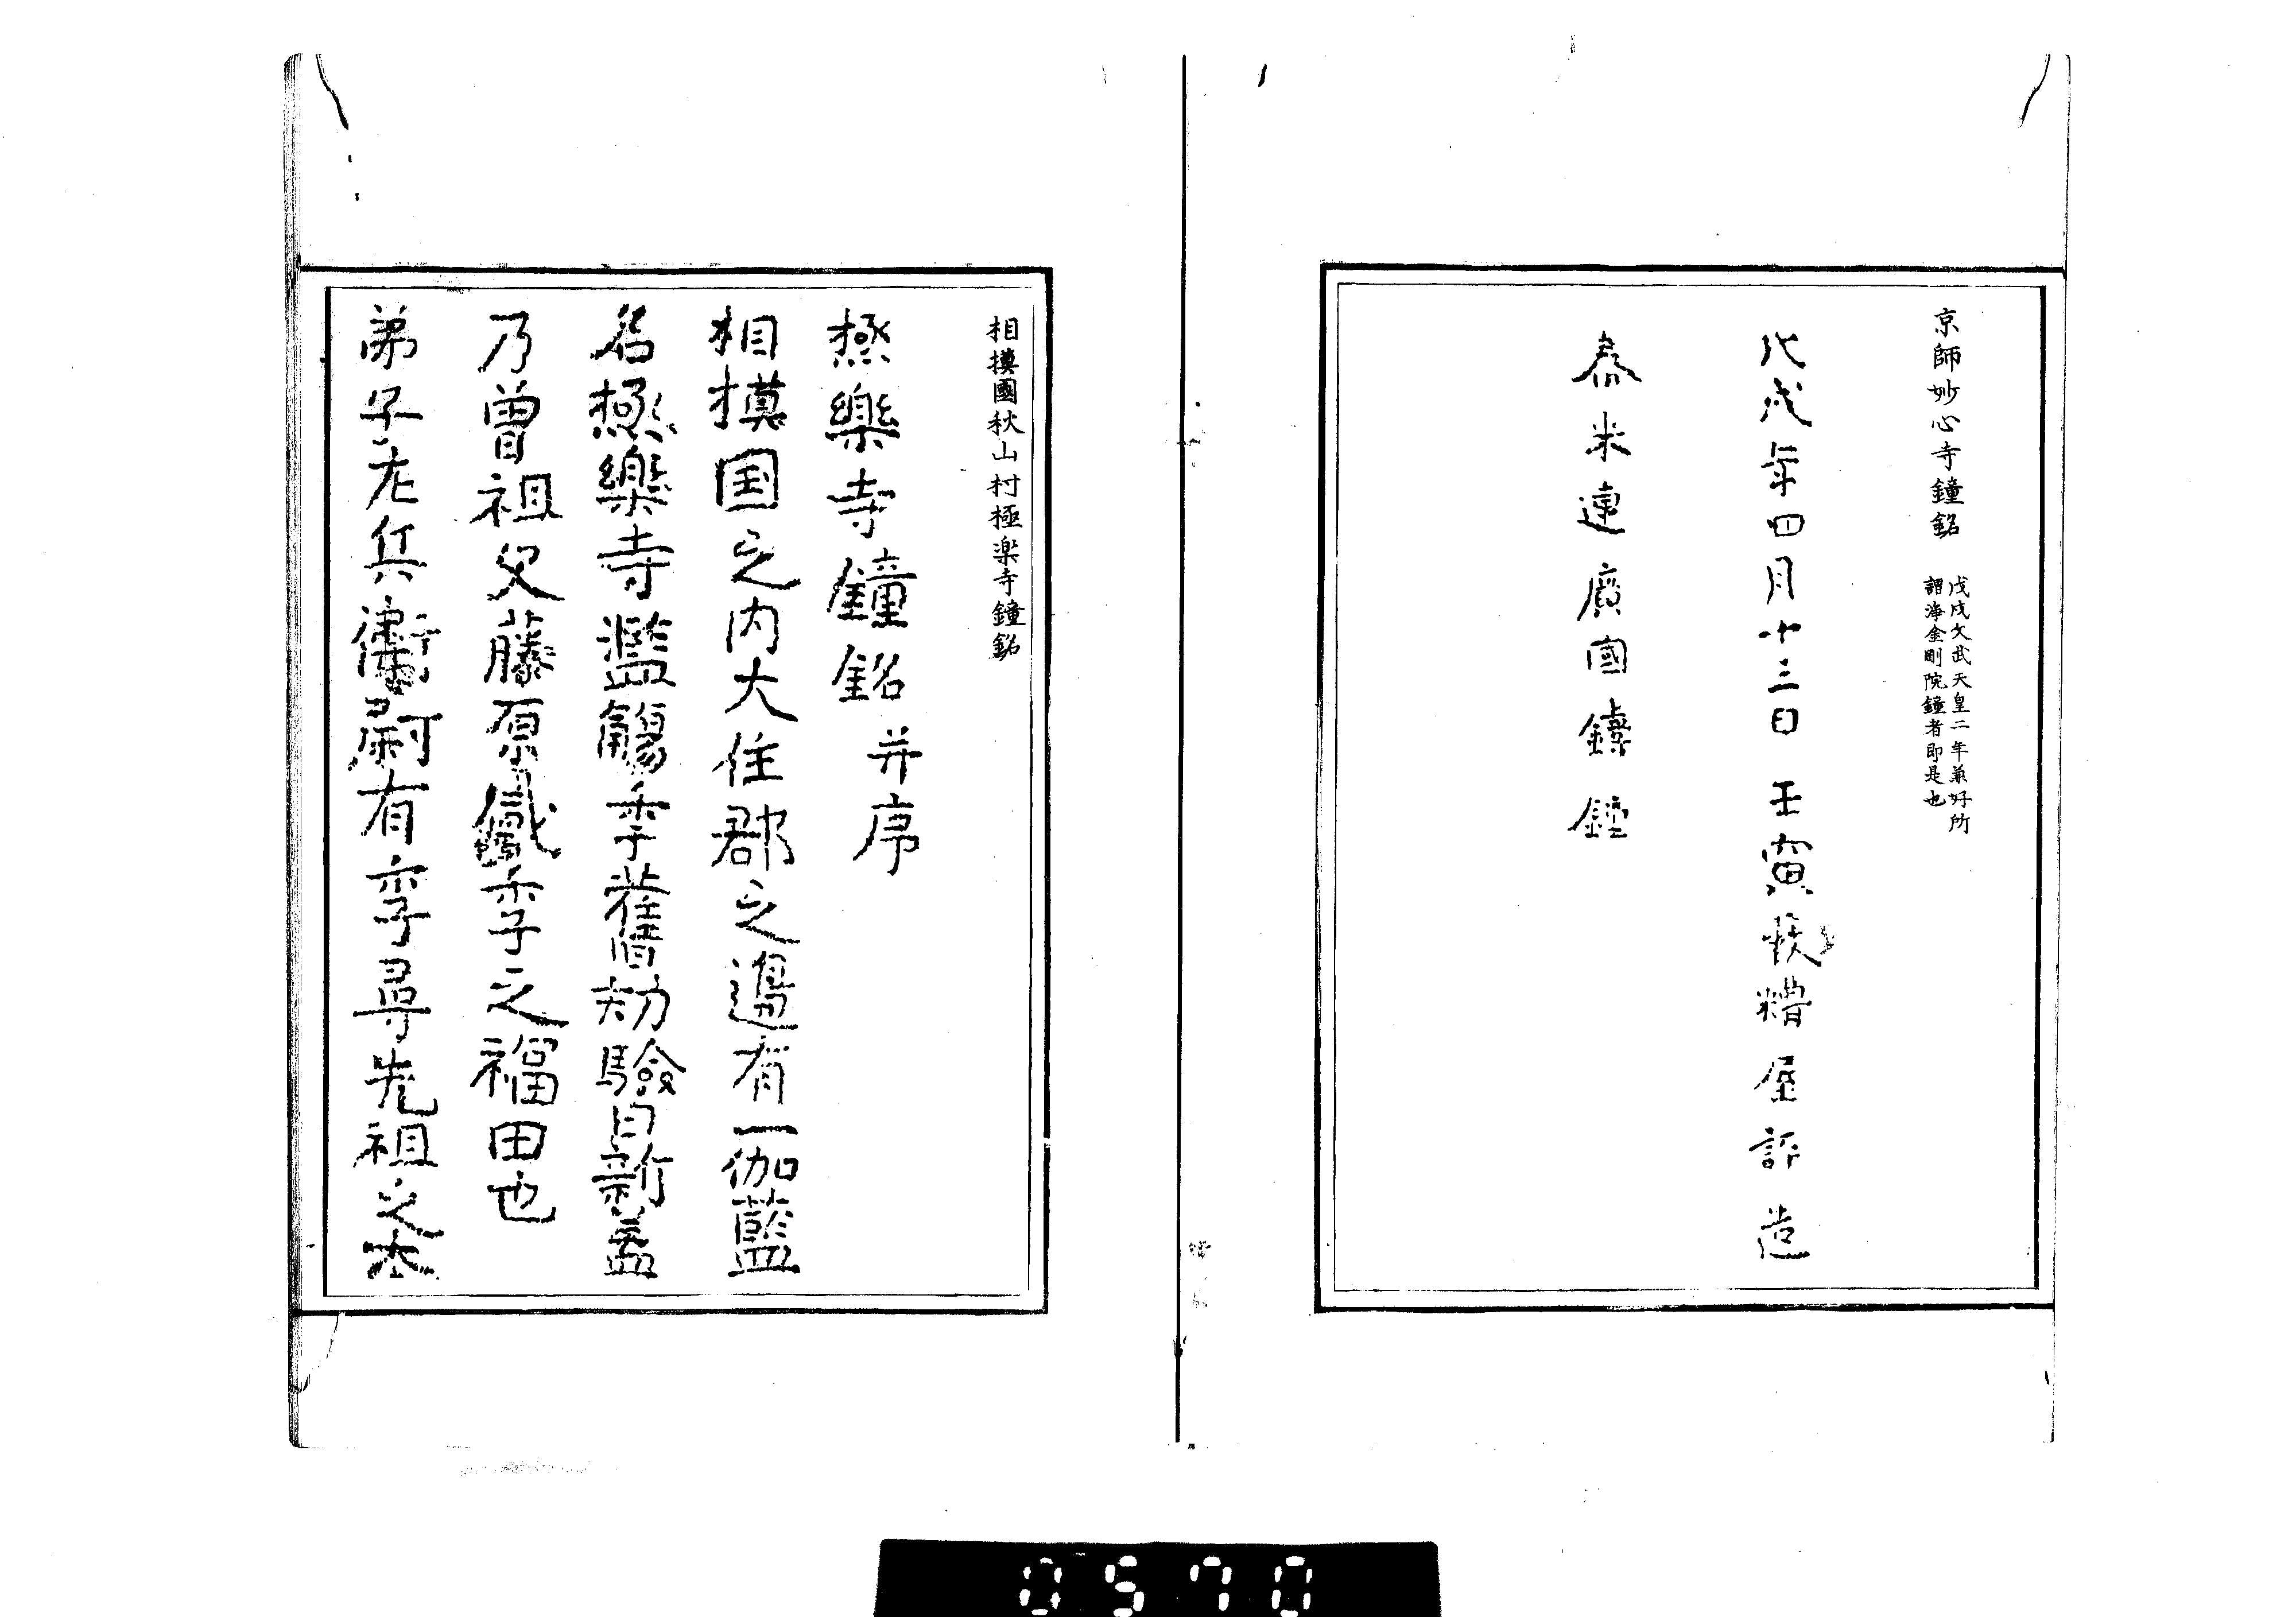 京師妙心寺鐘銘
戊戌文武天皇二年兼好所
謂浄金剛院鐘者即是也
戊戌年四月十三日壬寅收糟屋評造
舂米連廣國鑄鐘
相摸國秋山村極楽寺鐘銘
極樂寺鐘銘并序
相摸国之内大住郡之邊有一伽藍
名極樂寺濫觴季舊皆劫驗日新盖
乃曾祖父藤原季之福田也
弟子左兵衛尉有孝尋先祖之本
0570